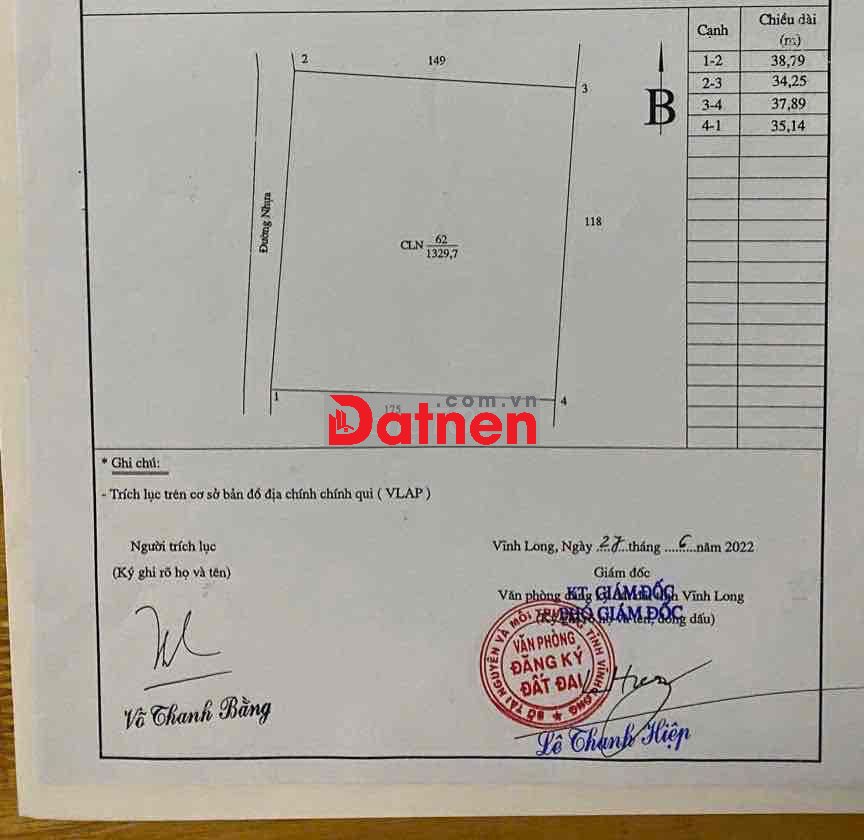 Cạnh
Chiều dài
(m)
1-2 38,79
2-3 34,25
3-4 37,89
4-1 35,14
2
149
3
B
Đường Nhựa
CLN 62
1329,7
118
1
175
4
.com.vn
Datnen
* Ghi chú:
- Trích lục trên cơ sở bản đồ địa chính chính qui ( VLAP )
Người trích lục
(Ký ghi rõ họ và tên)
Võ Thanh Bằng
Vĩnh Long, Ngày 27 tháng 6 năm 2022
Giám đốc
Văn phòng đăng ký đất đai tỉnh Vĩnh Long
KT. GIÁM ĐỐC
(Ký ghi rõ họ và tên, đóng dấu)
PHÓ GIÁM ĐỐC
SỞ TÀI NGUYÊN VÀ MÔI TRƯỜNG TỈNH VĨNH LONG
VĂN PHÒNG
ĐĂNG KÝ
ĐẤT ĐAI
Lê Thanh Hiệp